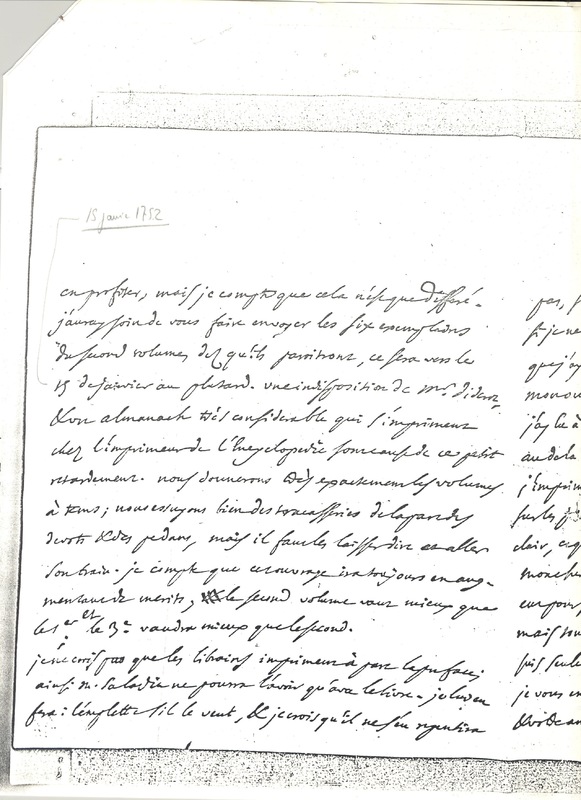 15 janvier 1752
en profiter, mais je compte que cela n'est que différé.
j'auray soin de vous faire envoyer les six exemplaires
du second volume dez qu'ils paroitront, ce sera vers le
15 de janvier au plutard. une indisposition de Mr. Diderot,
& un almanach très considerable qui s'imprime
chez l'imprimeur de l'Encyclopedie sont cause de ce petit
retardement. nous donnerons très exactement les volumes
à tems; nous essuyons bien des tracasseries de la part des
devots & des pedans, mais il faut les laisser dire et aller
son train. je compte que cet ouvrage ira toujours en aug-
mentant de merite, le second volume vaut mieux que
le 1er et le 3e vaudra mieux que le second.
je ne crois pas que les libraires impriment à part la preface;
ainsi M. Saladin ne pourra l'avoir qu'avec le livre. je luy en
feray l'emplette s'il le veut, & je crois qu'il ne s'en repentira
pas,
si je ne
que j'ay
mon ou
j'ay lu à
au dela
j'imprim
sur les
clair,
mon che
eur pour
mais tou
suis seule
je vous en